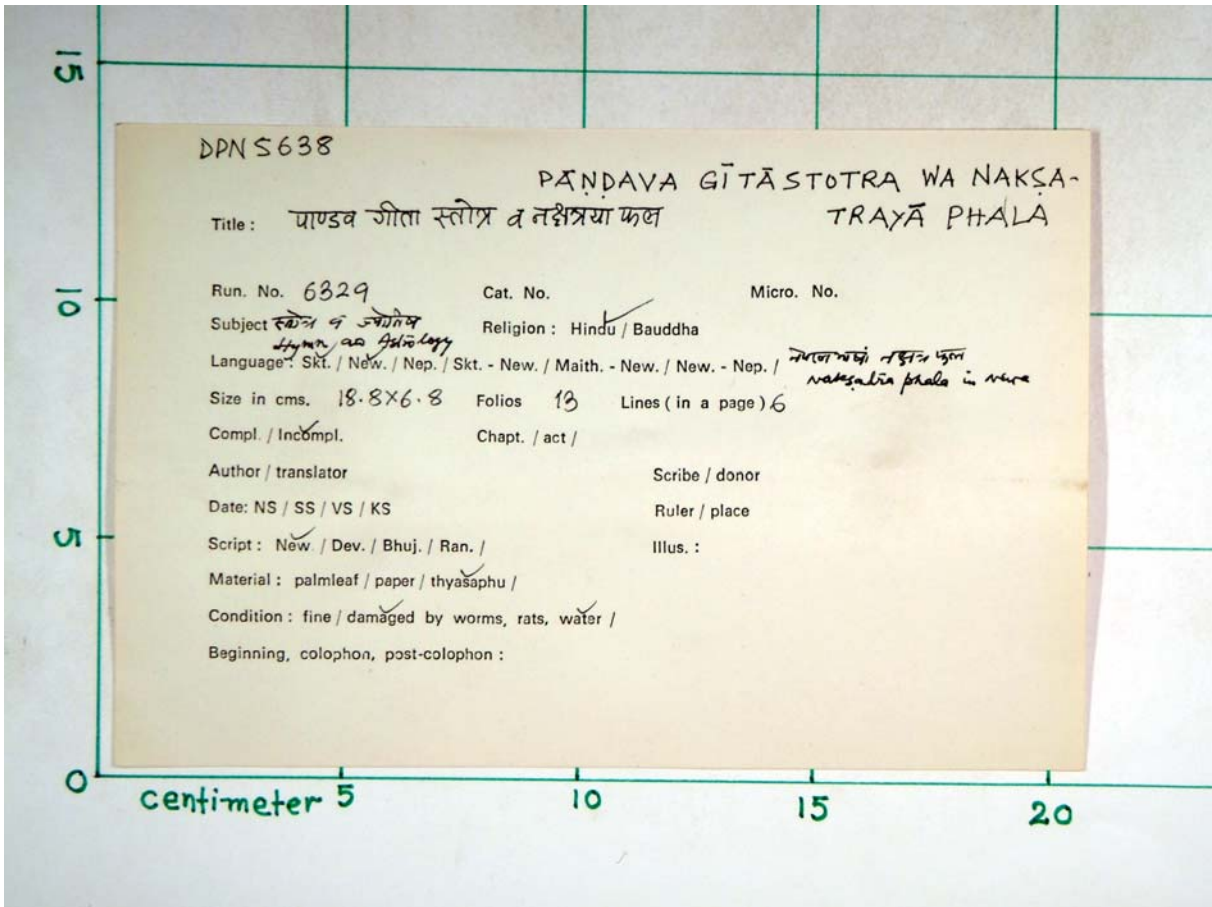 15
DPN 5638
PĀṆḌAVA GĪTĀSTOTRA WA NAKṢA-
Title : पाण्डव गीता स्तोत्र व नक्षत्रया फल TRAYĀ PHALA
10
Run. No. 6329 Cat. No. Micro. No.
Subject स्तोत्र व ज्योतिष Religion : Hindu / Bauddha
Hymn as Astrology
Language : Skt. / New. / Nep. / Skt. - New. / Maith. - New. / New. - Nep. / नक्षत्र फल
Nakṣatra phala in
Size in cms. 18.8×6.8 Folios 13 Lines ( in a page ) 6
Compl. / Incompl. Chapt. / act /
Author / translator Scribe / donor
Date: NS / SS / VS / KS Ruler / place
5
Script : New. / Dev. / Bhuj. / Ran. / Illus. :
Material : palmleaf / paper / thyasaphu /
Condition : fine / damaged by worms, rats, water /
Beginning, colophon, post-colophon :
0
centimeter 5 10 15 20